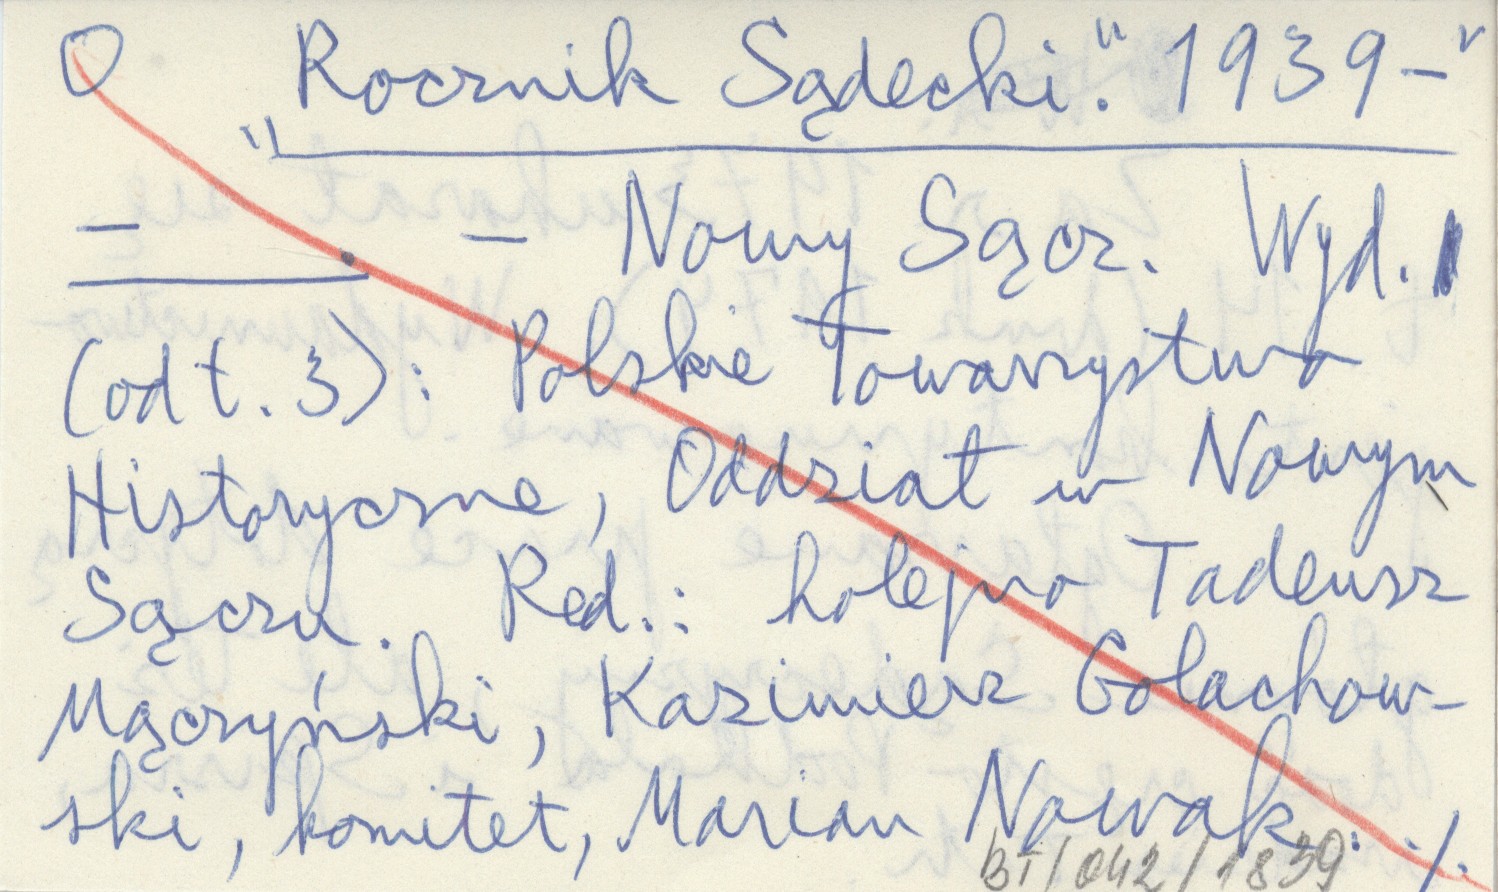 O „Rocznik Sądecki." 1939-"
— — Nowy Sącz. Wyd.
(od t. 3): Polskie Towarzystwo
Historyczne, Oddział w Nowym
Sączu. Red.: kolejno Tadeusz
Mączyński, Kazimierz Golachow-
ski, komitet, Marian Nowak. ./.
BT/042/1839